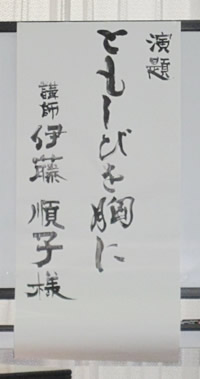 演題
ともしびを胸に
講師 伊藤順子様